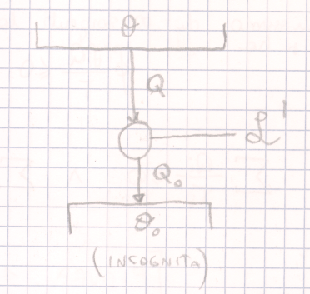 θ
Q
L'
Q₀
θ₀
(INCOGNITA)